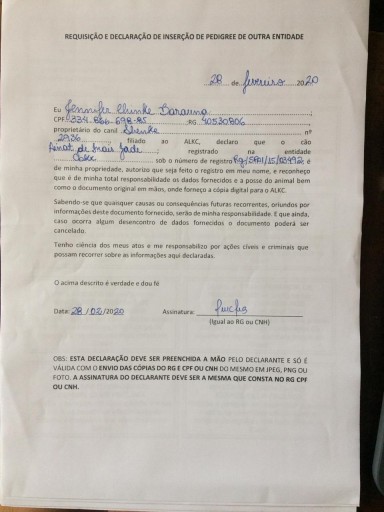 REQUISIÇÃO E DECLARAÇÃO DE INSERÇÃO DE PEDIGREE DE OUTRA ENTIDADE
28 de fevereiro 2020
Eu Jennifer
CPF: 334.866.698-85 ;RG 40530806
proprietário do canil nº
2936 filiado ao ALKC, declaro que o cão
registrado na entidade
sob o número de registro é
de minha propriedade, autorizo que seja feito o registro em meu nome, e reconheço
que é de minha total responsabilidade os dados fornecidos e a posse do animal bem
como o documento original em mãos, onde forneço a cópia digital para o ALKC.
Sabendo-se que quaisquer causas ou consequências futuras recorrentes, oriundos por
informações deste documento fornecido, serão de minha responsabilidade. E que ainda,
caso ocorra algum desencontro de dados fornecidos o documento poderá ser
cancelado.
Tenho ciência dos meus atos e me responsabilizo por ações cíveis e criminais que
possam recorrer sobre as informações aqui declaradas.
O acima descrito é verdade e dou fé
Data: 28/02/2020 Assinatura:
(Igual ao RG ou CNH)
OBS: ESTA DECLARAÇÃO DEVE SER PREENCHIDA A MÃO PELO DECLARANTE E SÓ É
VÁLIDA COM O ENVIO DAS CÓPIAS DO RG E CPF OU CNH DO MESMO EM JPEG, PNG OU
FOTO. A ASSINATURA DO DECLARANTE DEVE SER A MESMA QUE CONSTA NO RG CPF
OU CNH.